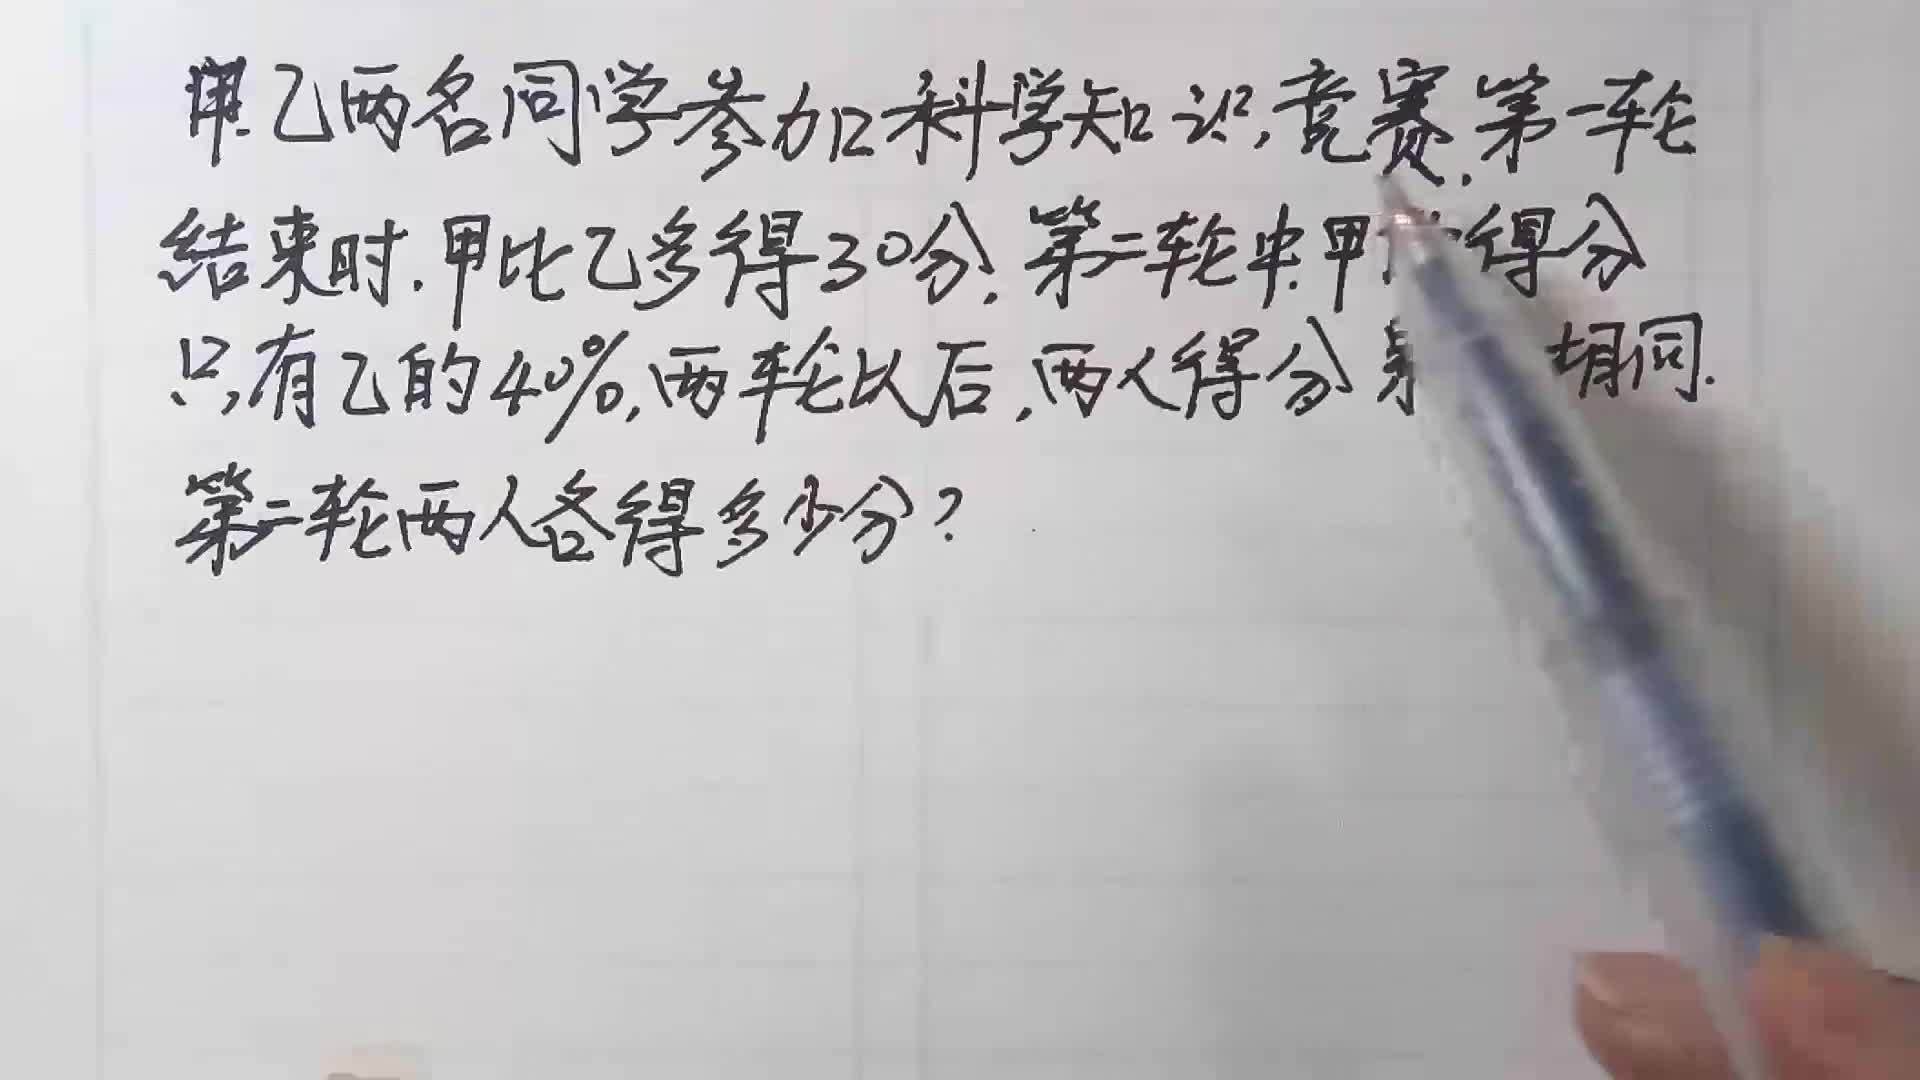 甲.乙两名同学参加科学知识竞赛.第一轮
结束时.甲比乙多得30分.第二轮中.甲得分
只有乙的40%,两轮以后,两人得分相同.
第二轮两人各得多少分?